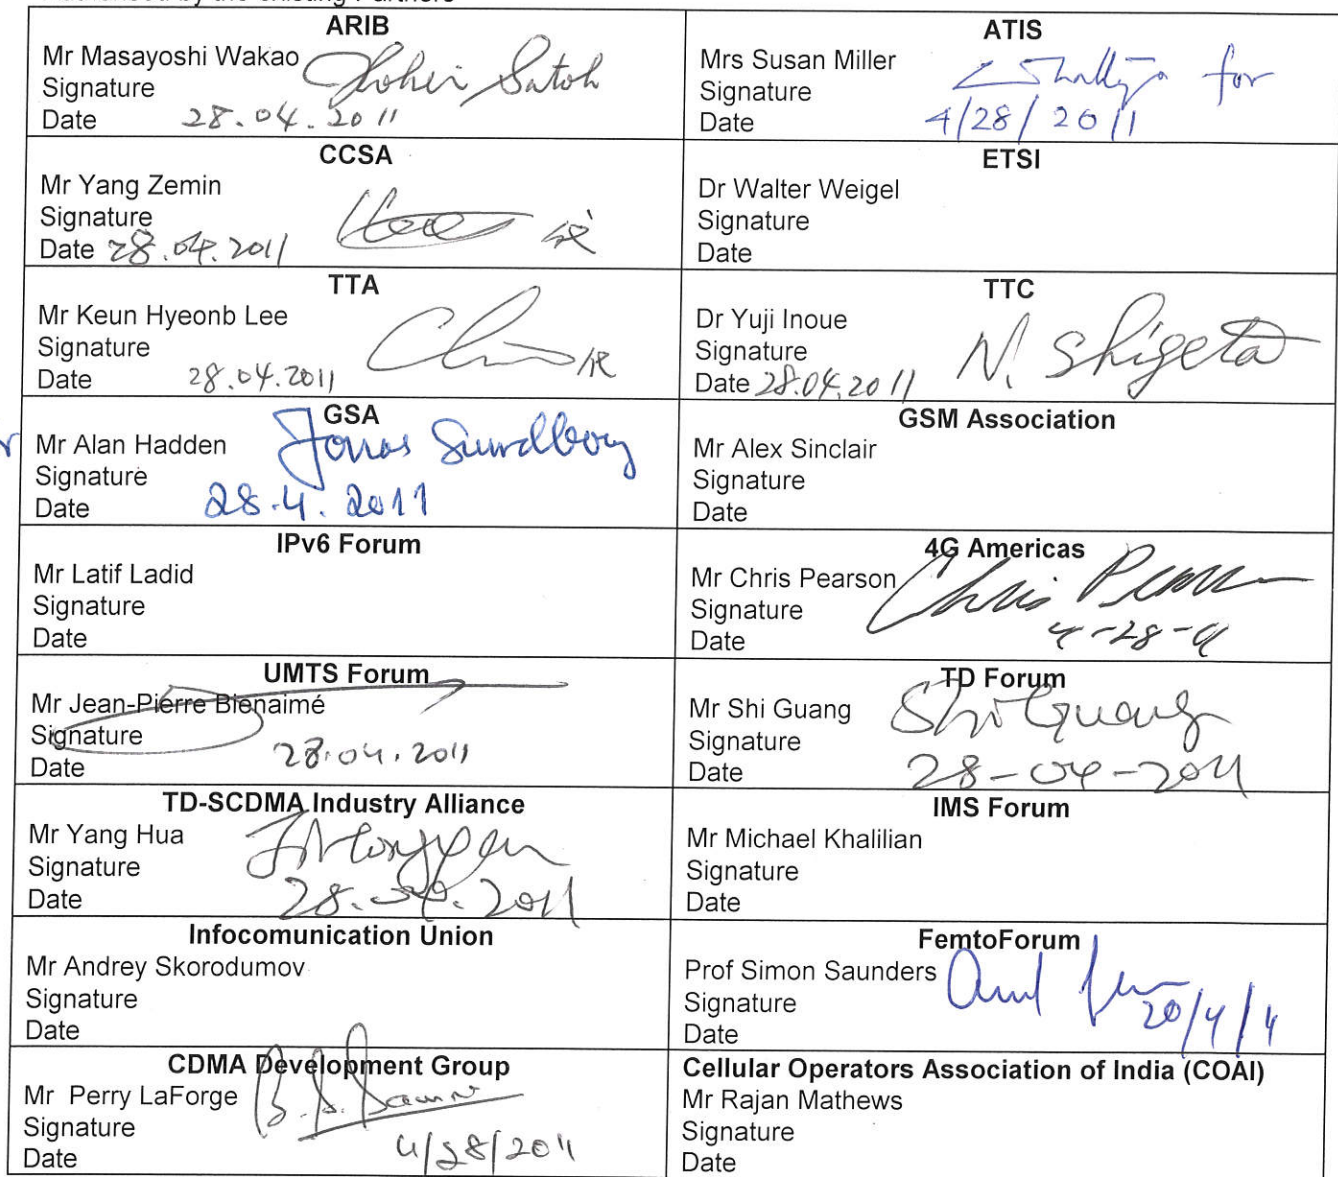 ARIB
Mr Masayoshi Wakao
Signature Yohei Satoh
Date 28.04.2011
ATIS
Mrs Susan Miller
Signature for
Date 4/28/2011
CCSA
Mr Yang Zemin
Signature
Date 28.04.2011
代
ETSI
Dr Walter Weigel
Signature
Date
TTA
Mr Keun Hyeonb Lee
Signature
Date 28.04.2011
代
TTC
Dr Yuji Inoue
Signature N. Shigeta
Date 28.04.2011
GSA
Mr Alan Hadden Jonas Sundborg
Signature
Date 28.4.2011
GSM Association
Mr Alex Sinclair
Signature
Date
IPv6 Forum
Mr Latif Ladid
Signature
Date
4G Americas
Mr Chris Pearson
Signature Chris Pearson
Date 4-28-11
UMTS Forum
Mr Jean-Pierre Bienaimé
Signature
Date 28.04.2011
TD Forum
Mr Shi Guang Shi Guang
Signature
Date 28-04-2011
TD-SCDMA Industry Alliance
Mr Yang Hua
Signature
Date 28.04.2011
IMS Forum
Mr Michael Khalilian
Signature
Date
Infocomunication Union
Mr Andrey Skorodumov
Signature
Date
FemtoForum
Prof Simon Saunders
Signature
Date
CDMA Development Group
Mr Perry LaForge
Signature
Date 4/28/2011
Cellular Operators Association of India (COAI)
Mr Rajan Mathews
Signature
Date